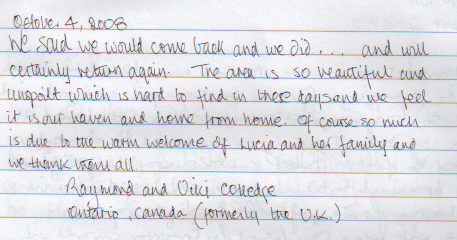 October 4, 2008
We said we would come back and we did.... and will
certainly return again. The area is so beautiful and
unspolt which is hard to find in these days and we feel
it is our haven and home from home. Of course so much
is due to the warm welcome of Lucia and her family and
we thank them all.
Raymond and
Ontario, Canada (formerly the U.K.)